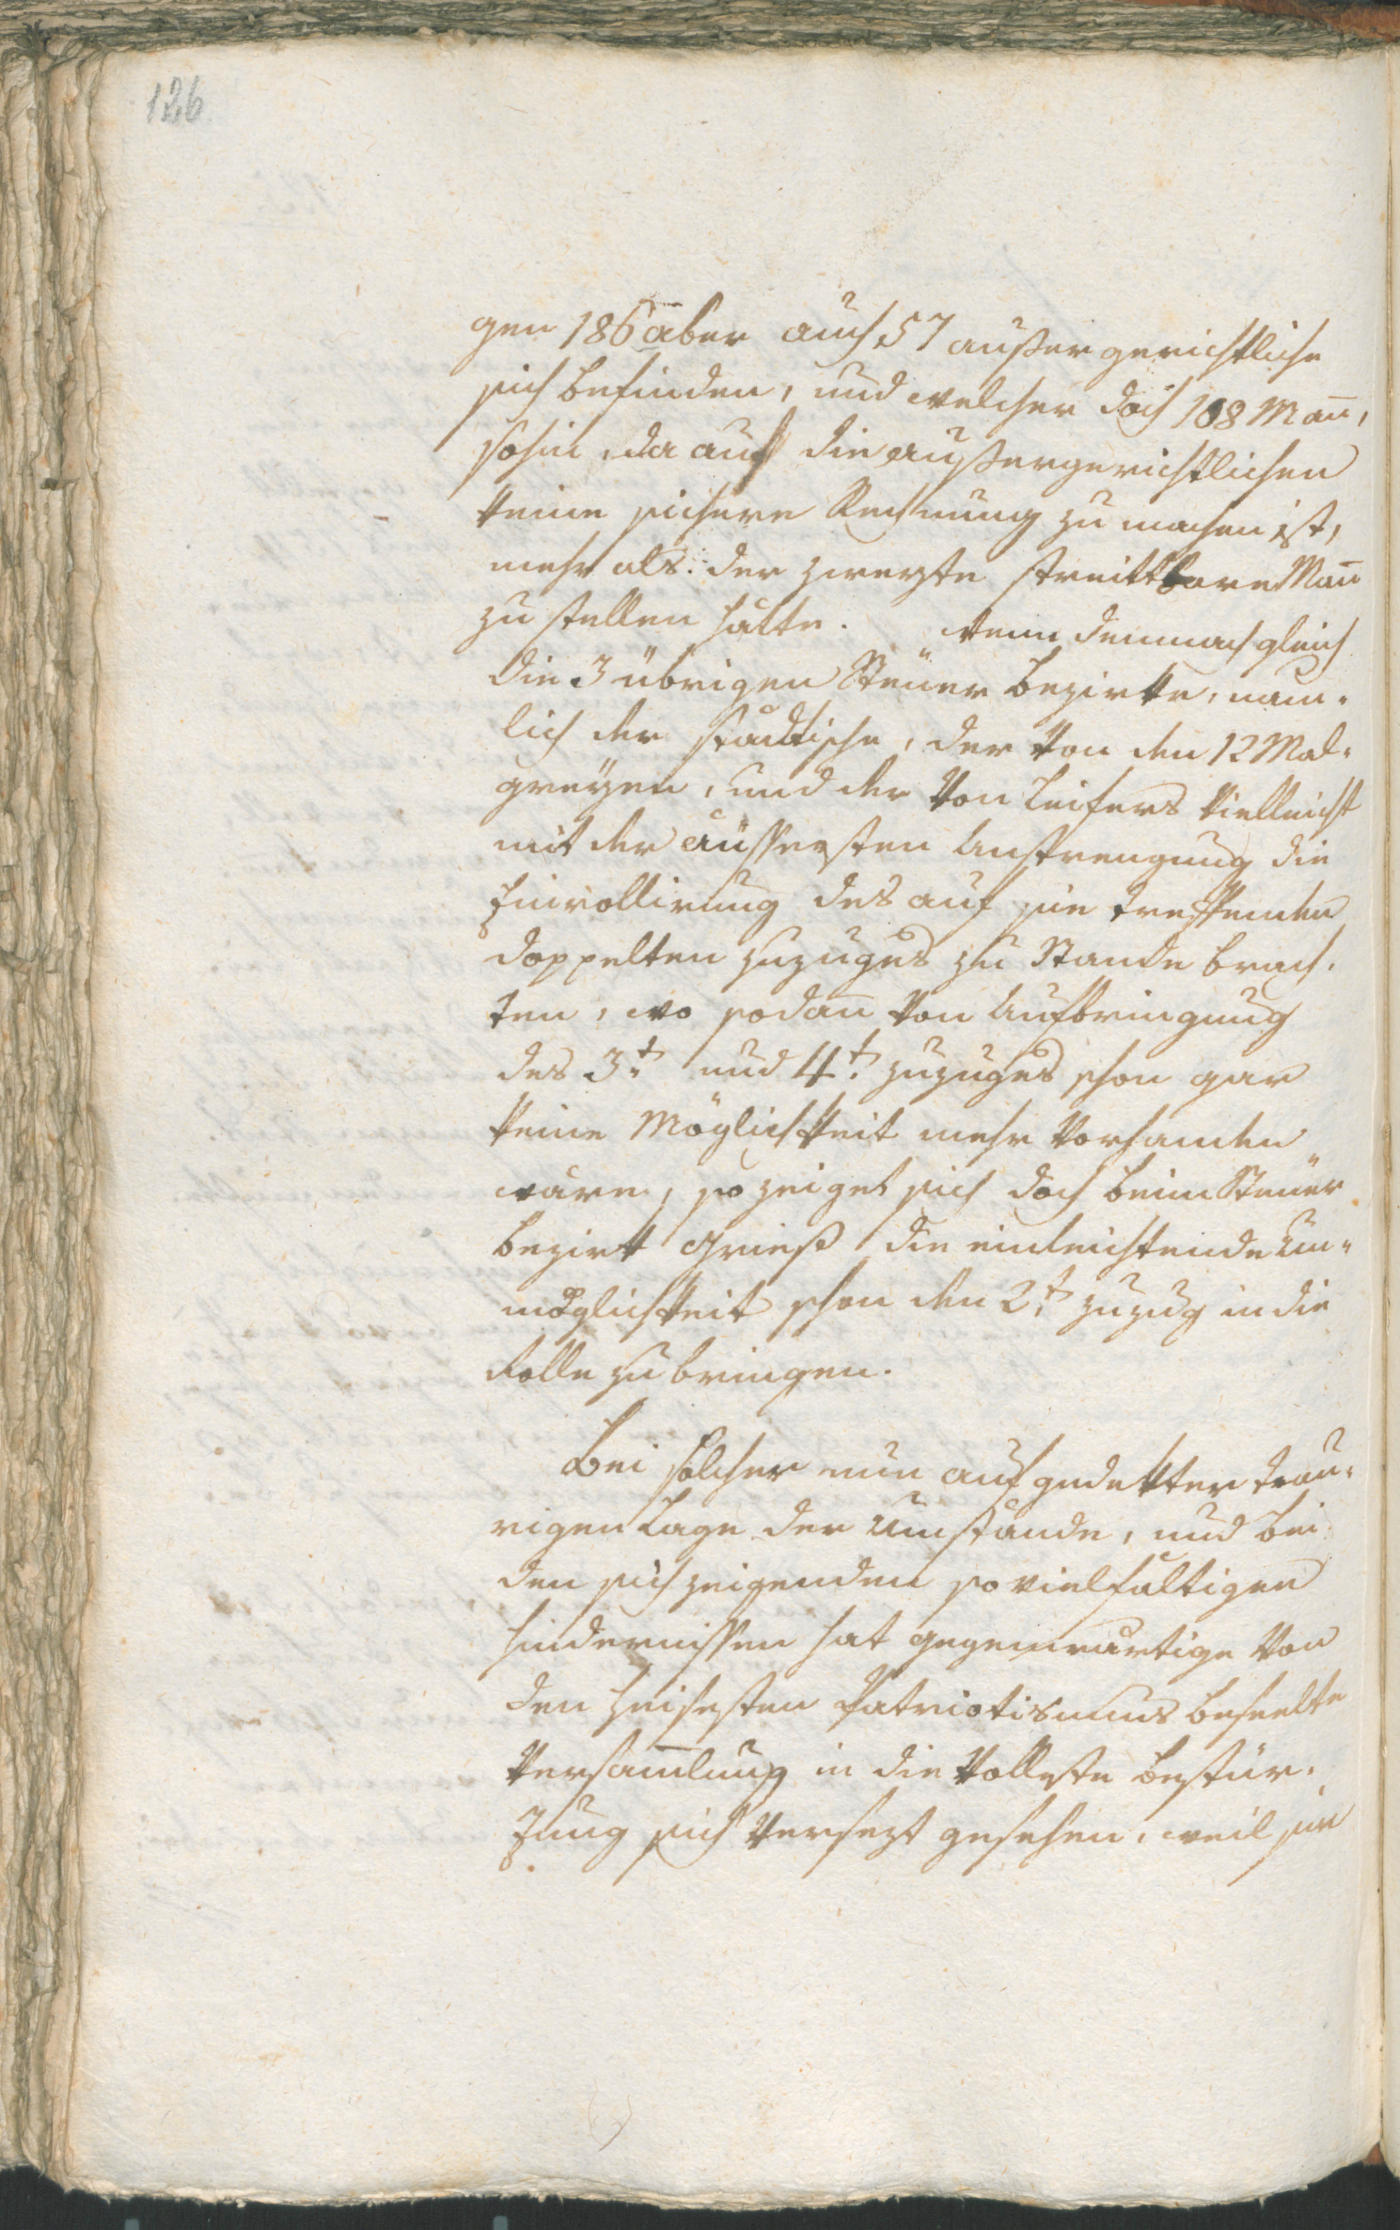 126
gen 186 aber auch 57 außergerichtliche
sich befinden, und welcher doch 108 Mañ,
sohin, da auf die außergerichtlichen
keine sichere Rechnung zu machen ist,
mehr als der zweyte streittbare Mañ
zu stellen hätte. Wenn demnach gleich
die 3 übrigen Steuer bezirke, näm-
lich der städtische, der von den 12 Mal-
greyen, und der von Leifers vielleicht
mit der äüssersten Anstrengung die
Enrollirung des auf sie treffenden
doppelten Zuzuges zu Stande bräch-
ten, wo sodañ von Aufbringung
des 3t. und 4t. Zuzuges schon gar
keine Möglichkeit mehr vorhanden
wäre, so zeiget sich doch beim Steuer
bezirk Grieß die einleichtende Un-
möglichkeit schon den 2t. Zuzug in die
Rolle zu bringen.
Bei solcher nun aufgedekter trau-
rigen Lage der Umstände, und bei
den sich zeigenden so vielfältigen
Hindernissen hat gegenwärtige von
den heisesten Patriotismus beseelte
Versam̄lung in die vollste Bestür-
zung sich versezt gesehen, weil sie